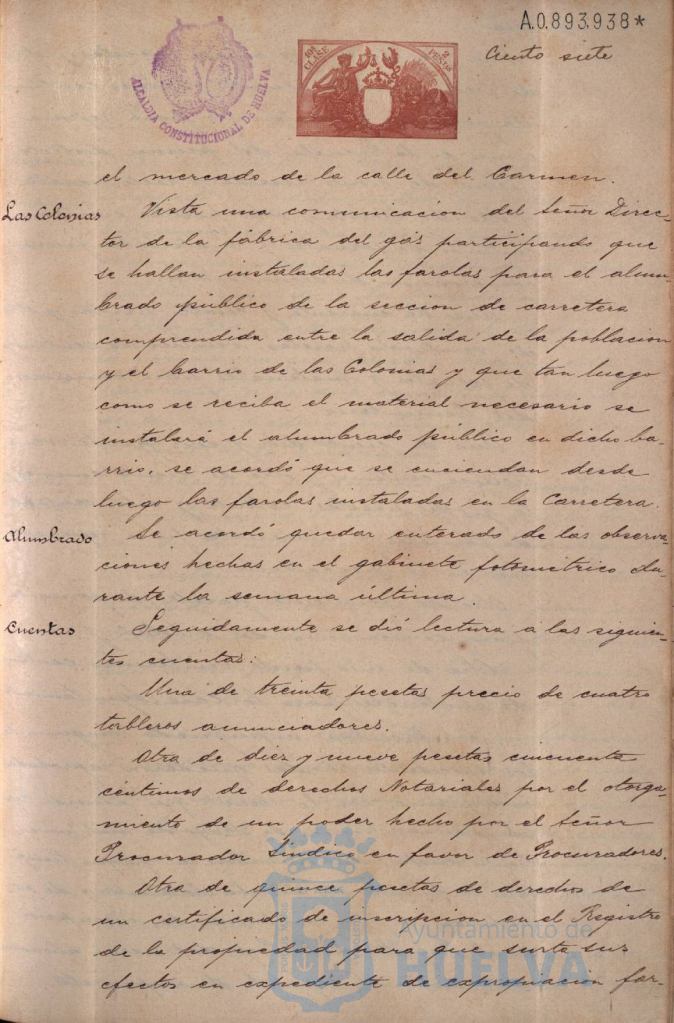 A.0.893.938*
ALCALDIA CONSTITUCIONAL DE HUELVA
10ª CLASE 2 PESETAS
Ciento siete
el mercado de la calle del Carmen.
Las Colonias
Vista una comunicacion del Señor Direc-
tor de la fábrica del gas participando que
se hallan instaladas las farolas para el alum-
brado público de la seccion de carretera
comprendida entre la salida de la poblacion
y el barrio de las Colonias y que tan luego
como se reciba el material necesario se
instalará el alumbrado público en dicho ba-
rrio, se acordó que se enciendan desde
luego las farolas instaladas en la Carretera.
Alumbrado
Se acordó quedar enterado de las observa-
ciones hechas en el gabinete fotométrico du-
rante la semana última.
Cuentas
Seguidamente se dió lectura a las siguien-
tes cuentas:
Una de treinta pesetas precio de cuatro
tableros anunciadores.
Otra de diez y nueve pesetas cincuenta
céntimos de derechos Notariales por el otorga-
miento de un poder hecho por el Señor
Procurador Sindico en favor de Procuradores.
Otra de quince pesetas de derechos de
un certificado de inscripcion en el Registro
de la propiedad para que surta sus
efectos en expediente de expropiacion for-
Ayuntamiento de
HUELVA